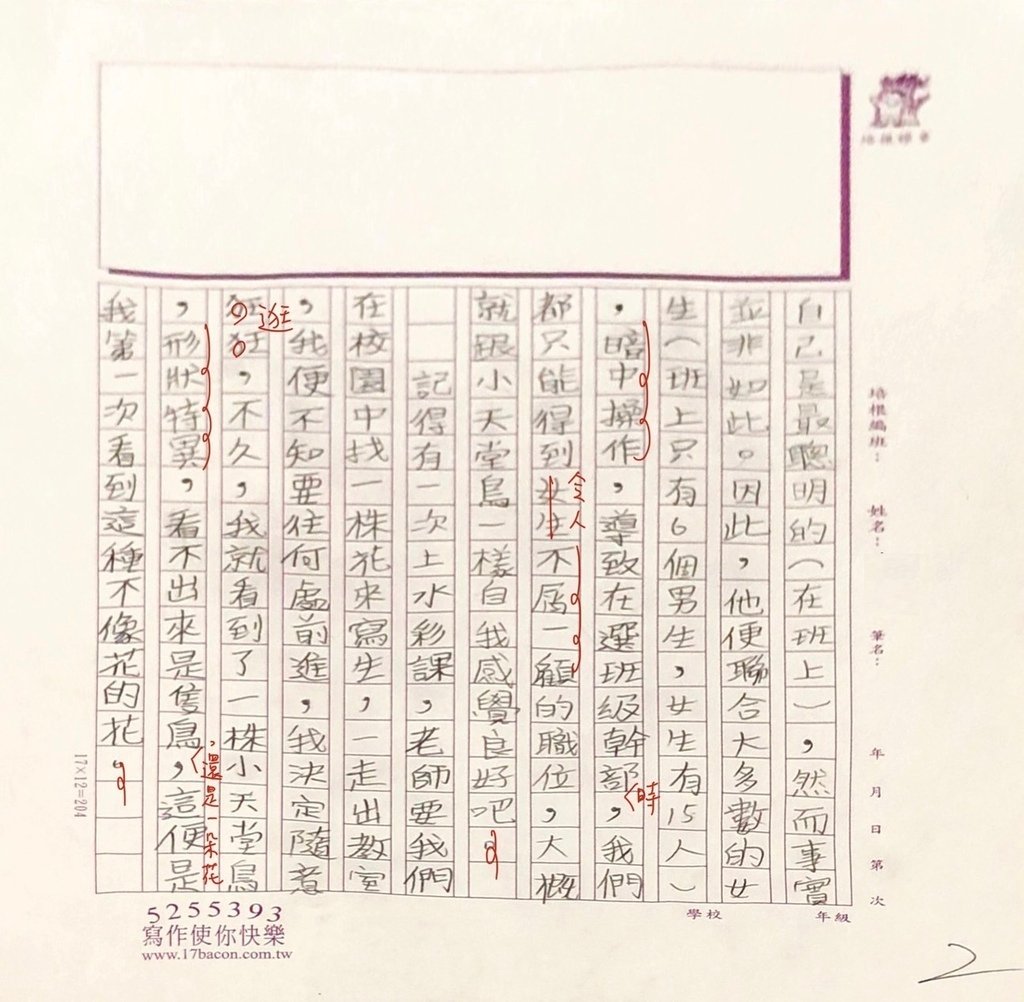 自己是最聰明的(在班上),然而事實
並非如此。因此,他便聯合大多數的女
生(班上只有6個男生,女生有15人)
,暗中操作,導致在選班級幹部,我們
時
都只能得到女生不屑一顧的職位,大概
令人
就跟小天堂鳥一樣自我感覺良好吧。
記得有一次上水彩課,老師要我們
在校園中找一株花來寫生,一走出教室
,我便不知要往何處前進,我決定隨意
狂狂,不久,我就看到了一株小天堂鳥
逛
,形狀特異,看不出來是隻鳥,這便是
,還是一朵花
我第一次看到這種不像花的花。
培根編班:
姓名:
筆名:
年 月 日 第 次
學校 年級
17×12=204
5255393
寫作使你快樂
www.17bacon.com.tw
2